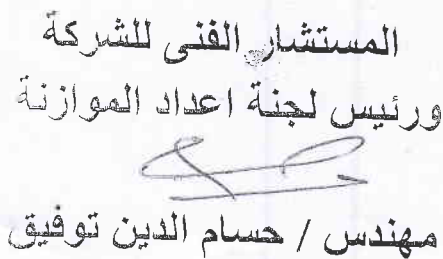 المستشار الفنى للشركة
ورئيس لجنة اعداد الموازنة
مهندس / حسام الدين توفيق